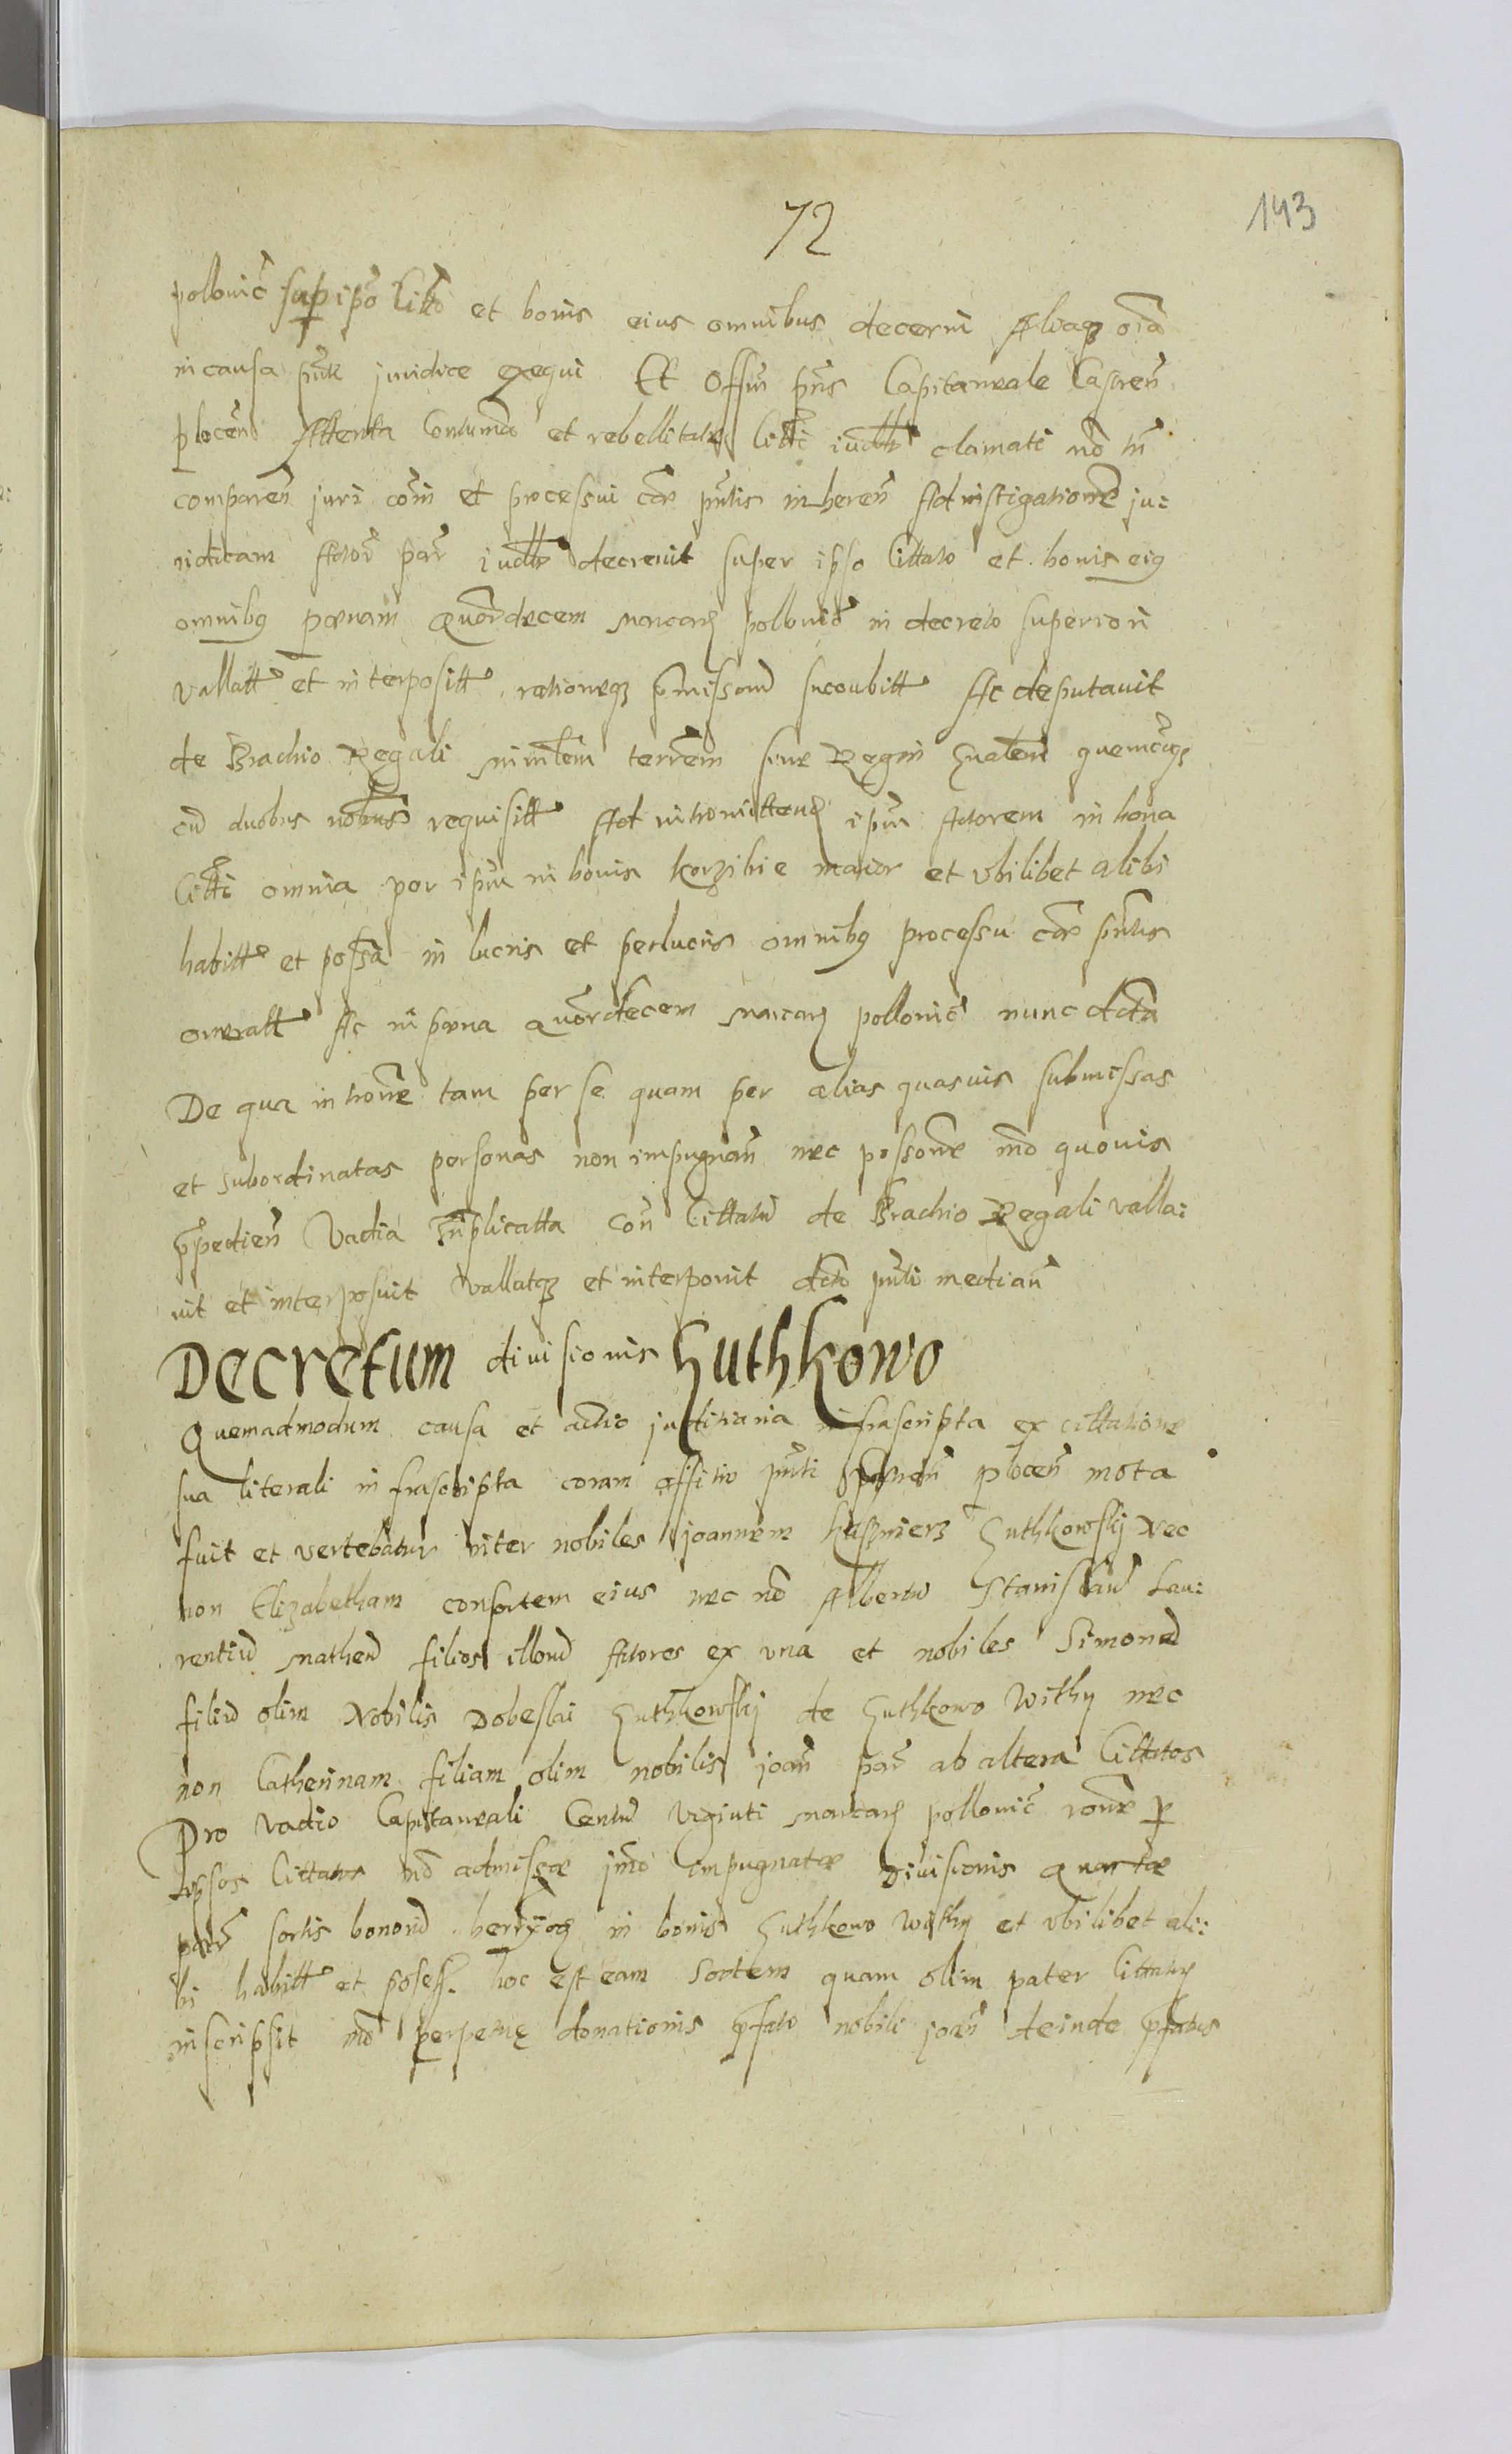 72
143
pollonic̃ sup ip̃o Citto et bonis eius omnibus decerni Aliaq3 oĩa
in causa pñti juridice exequi Et Offm̃ pñs Capitaneale Castren̄
plocen̄ Attenta Contumã et rebellitate Citti iudltr clamati nõ tñ
comparen̄ juri cõm et processui cãe pñtis inherẽn Ad instigationẽ ju:
ridicam Actor̃ par̃ iudltr decrevit super ipso Cittato et bonis ei9
omnib9 pœnam Quordecem marcar̃ pollonic̃ in decreto superiori
vallatt et interpositt rationeq3 pmissorũ sucoubitt Ac deputavit
de Brachio Regali minl̃em terrẽm seu Regni Gnãlem quemcũq3
cũ duobus nobilibus requisitt Ad intromittend̃ ipm̃ Actorem in bona
Citti omnia per ipm̃ in bonis korzibie maior et vbilibet alibi
habitt et possã in lucris et perlucris omnib9 processu cãe pñtis
overatt Ac in pœna Quordecem marcar̃ pollonic̃ nunc dictã
De qua intrõne tam per se quam per alias quasvis submissas
et subordinatas personas non impugnañ nec possone mõ quovis
ppedien̄ Vadia Triplicatta Coñ Cittatũ de Brachio Regali valla:
vit et interposuit vallatq3 et interponit dcto pñti mediañ
Decretum divisionis Guthkowo
Quemadmodum causa et actio juditiaria infrascripta ex cittatione
sua literali infrascripta coram offitio pñti Castren̄ plocen̄ mota
fuit et vertebatur inter nobiles joannem kazmierz Guthkowskij Nec
non Elizabetham consortem eius nec nõ Albertũ Stanislaũ Lau:
rentiũ matheũ filios illorũ Actores ex vna et nobiles Simonẽ
filiũ olim Nobilis Dobeslai Guthkowskij de Guthkowo Withy nec
non Catherinam filiam olim nobilis joañ par̃ ab altera Cittatos
Pro vadio Capitaneali Centũ viginti marcar̃ pollonic̃ rõne p
ipsos Cittatos nõ admissæ jmõ impugnatæ divisionis Quartæ
par̃ sortis bonorũ in bonis Guthkowo Withy et vbilibet ali:
bi habitt et posess. hoc est eam Sortem quam olim pater Cittator̃
inscripsit mõ perpetuę donationis pfato nobili joañ deinde pfatus